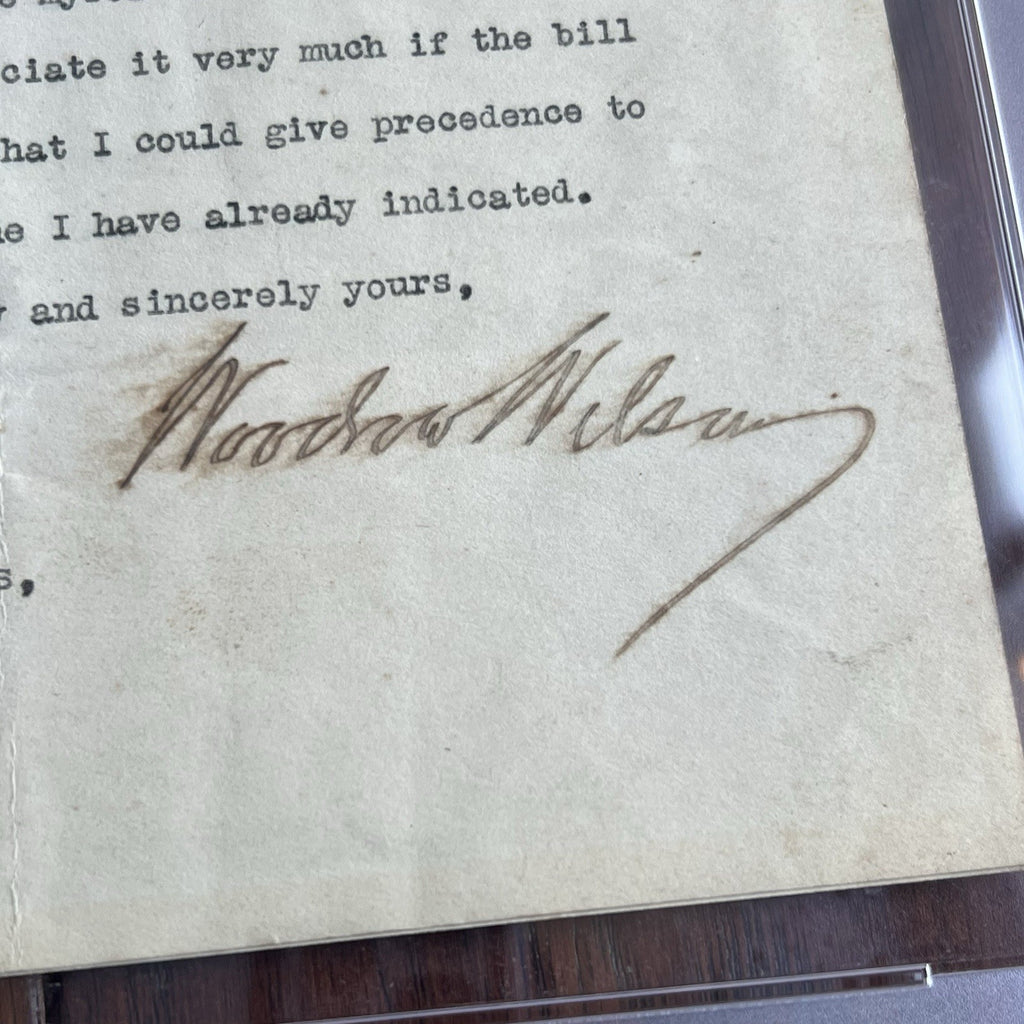 ciate it very much if the bill
hat I could give precedence to
I have already indicated.
and sincerely yours,
Woodrow Wilson
s,